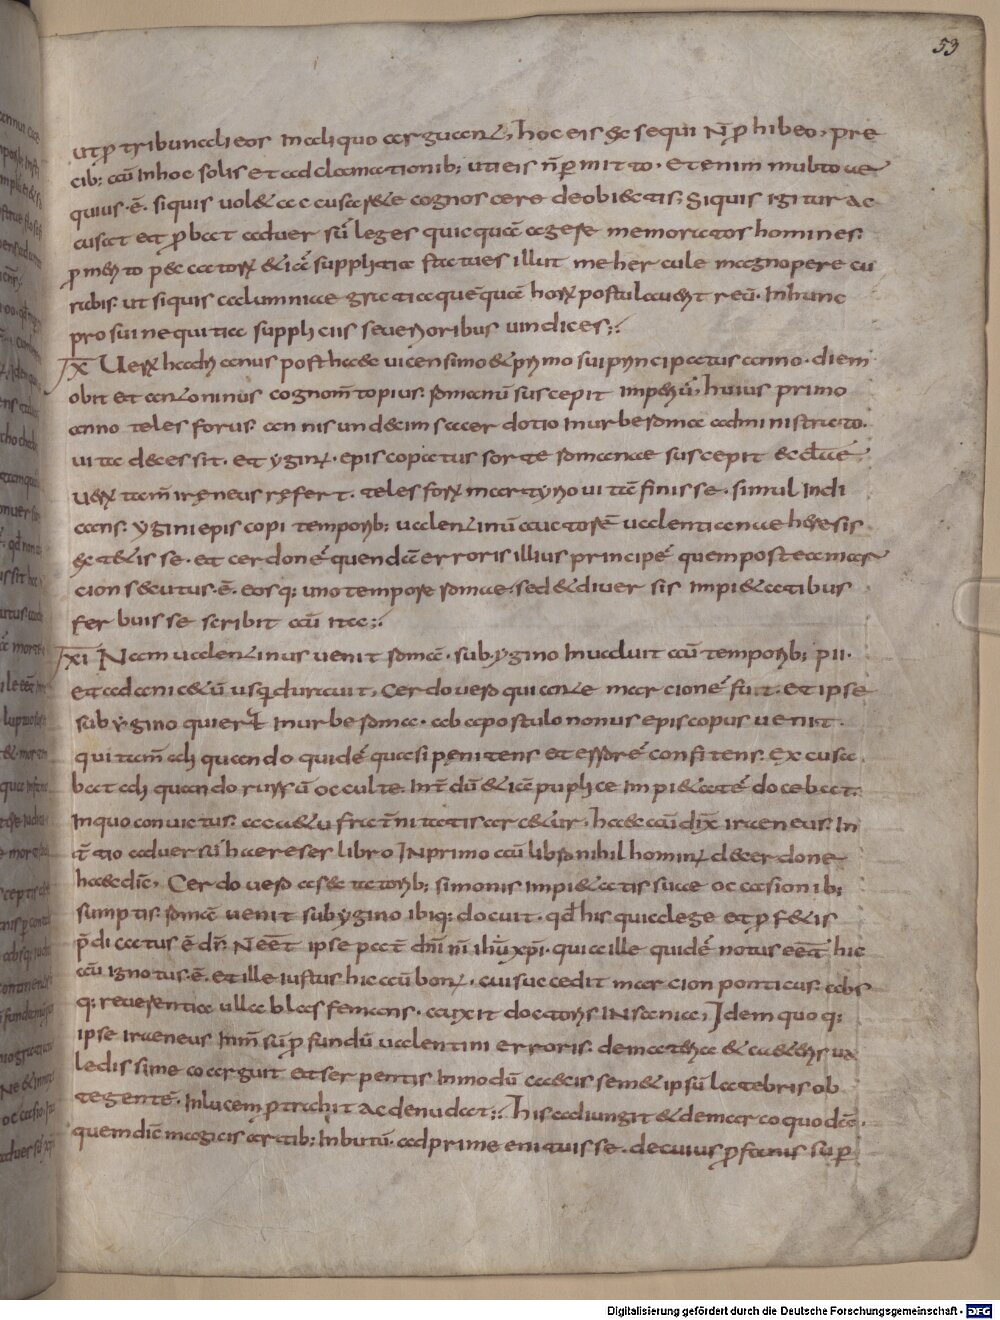 53
utp̄ tribunali eos in aliquo arguant, hoc eis exequi n̄ p̄hibeo, pre
cib; aū in hoc solis et adclamationib; uti eis n̄ p̄mitto. Etenim multo ae
quius .ē. siquis uolet accusare cognoscere de obiectis; Siquis igitur ac
cusat et p̄bat aduersū leges quicquā agere memoratos homines.
p̄ merito peccatorꝝ etiā supplicia statues illut mehercule magnopere cu
rabis. ut siquis calumniae gratia quēquā horꝝ postulauerit reū. In hunc
pro sui nequitia suppliciis seuerioribus uindices;.
X Uerꝝ hadrianus post haec uicensimo et primo sui principatus anno. diem
obit et antoninus cognom̄to pius romanū suscepit imperiū, huius primo
anno telesforus. annis undecim sacerdotio in urbe roma administrato.
uita decessit. et yginus. episcopatus sorte romanae suscepit ecclae.
Uerꝝ tam̄ ireneus refert. telesforꝝ martyrio uitā finisse. simul indi
cans. ygini episcopi temporib; ualentinū auctorē ualentinianae heresis
extetisse. et cerdonē quendā erroris illius principē quem postea mar
cion secutus .ē. eosq; uno tempore romae. sed et diuersis impietatibus
ferbuisse scribit aū ita;.
XI Nam ualentinus uenit romā. sub ygino inualuit aū temporib; pii.
et ad anicetū usq; durauit, Cerdo uero qui ante marcionē fuit. et ipse
sub ygino qui erat in urbe roma. ab apostulo nonus episcopus uenit.
qui tam̄ aliquando quidē quasi penitens et errorē confitens. Excusa
bat aliquando rursū occulte. Int̄dū etiā puplice impietatē docebat.
In quo conuictus. a caetu frat̄nitatis arcetur, haec aū dix̄ iraeneus. In
t̄tio aduersū haereses libro IN primo aū libro nihilhominus de cerdone
haec dic̄, Cerdo uero a sectatorib; simonis impietatis suae occasionib;
sumptis. romā uenit sub ygino ibiq; docuit. qđ his qui a lege et p̄fetis
p̄dicatus ē dr̄. N eēt ipse pat̄ dn̄i nr̄i ihū xp̄i. quia ille quidē notus eēt hic
aū ignotus .ē. et ille iustus hic aū bonus. cui succedit marcion ponticus. abs
q; reuerentia ulla blasfemans. auxit doctoris INsania, Idem quoq;
ipse iraeneus inm̄sū p̄fundū ualentini erroris. de materia et caeteris ua
ledissime coarguit et serpentis inmodū caecis semet ipsū latebris ob
tegentē. In lucem p̄trahit ac denudat;. his adiungit et de marco quodā.
quem dic̄ magicis artib; inbutū. adprime enituisse. de cuius p̄fanis sup̄
Digitalisierung gefördert durch die Deutsche Forschungsgemeinschaft - DFG